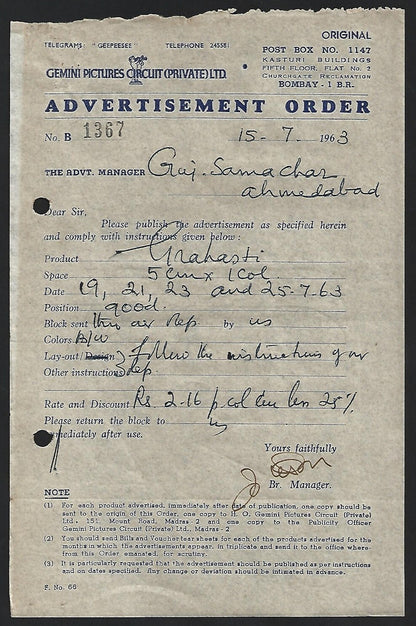 ORIGINAL
TELEGRAMS: "GEEPEESEE" TELEPHONE 245581
POST BOX NO. 1147
KASTURI BUILDINGS
FIFTH FLOOR, FLAT No. 2
CHURCHGATE RECLAMATION
BOMBAY - 1 B.R.
GEMINI PICTURES CIRCUIT (PRIVATE) LTD.
ADVERTISEMENT ORDER
No. B 1367 15-7-1963
THE ADVT. MANAGER Guj. Samachar,
ahmedabad
Dear Sir,
Please publish the advertisement as specified herein
and comply with instructions given below:
Product Grahasti
Space 5 cm x 1 Col.
Date 19, 21, 23 and 25-7-63
Position good.
Block sent thru our Rep. by us
Colors B/W
Lay-out/Design } follow the instructions of our
Other instructions } Rep.
Rate and Discount Rs. 2-16 p. col cm less 25%
Please return the block to us
immediately after use.
Yours faithfully
Br. Manager.
NOTE
(1) For each product advertised, immediately after date of publication, one copy should be
sent to the origin of this Order, one copy to H. O. Gemini Pictures Circuit (Private)
Ltd., 151, Mount Road, Madras-2 and one copy to the Publicity Officer
Gemini Pictures Circuit (Private) Ltd., Madras-2
(2) You should send Bills and Voucher tear sheets for each of the products advertised for the
months in which the advertisements appear, in triplicate and send it to the office where-
from this Order, emanated, for scrutiny.
(3) It is particularly requested that the advertisement should be published as per instructions
and on dates specified. Any change or deviation should be intimated in advance.
F. No. 66